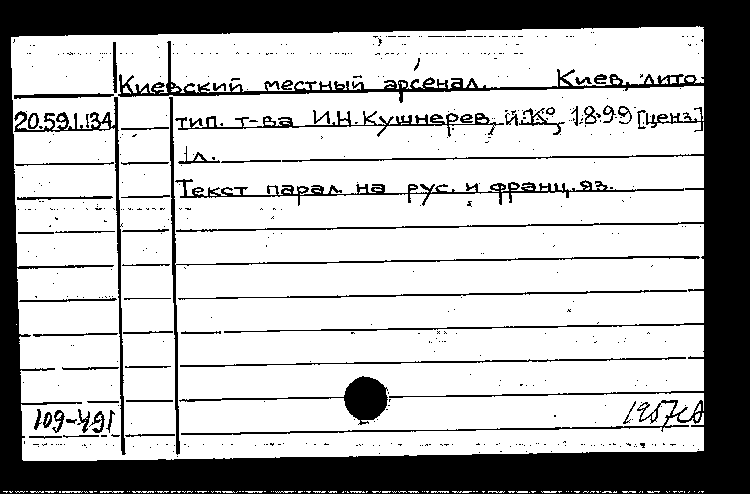 Киевский местный арсенал. Киев, лито-
20.59.1.134. тип. т-ва И.Н.Кушнерев, и.Кº, 1899 [ценз.]
1л.
Текст парал. на рус. и франц. яз.
109-491